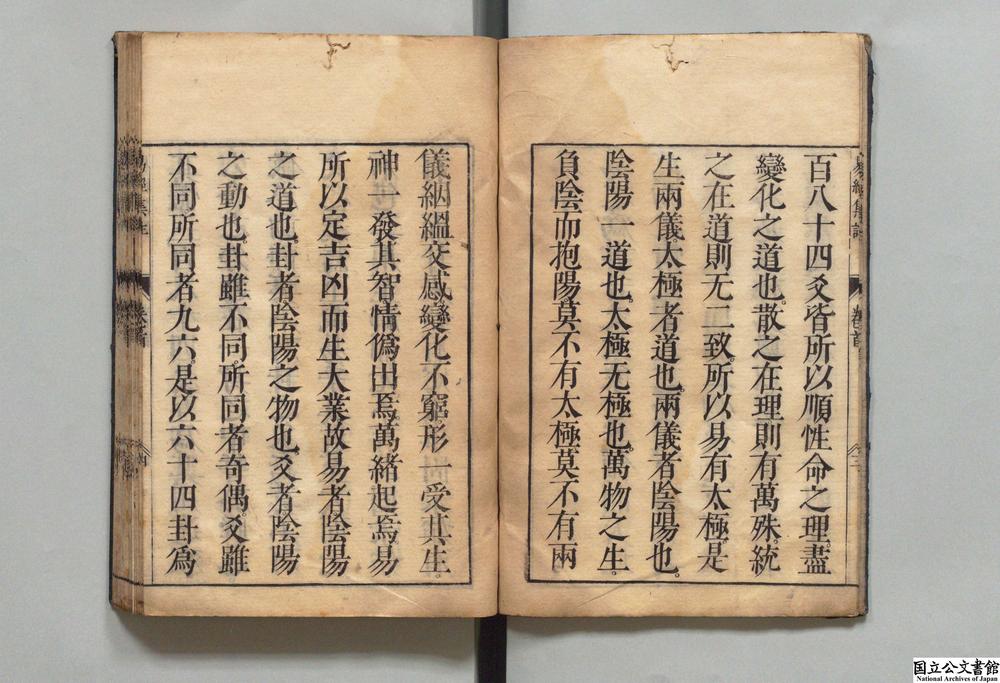 百八十四爻皆所以順性命之理盡
變化之道也。散之在理則有萬殊。統
之在道則无二致。所以易有太極。是
生兩儀。太極者道也。兩儀者陰陽也。
陰陽一道也。太極无極也。萬物之生。
負陰而抱陽莫不有太極莫不有兩
儀絪縕交感變化不窮形一受其生。
神一發其智情僞出焉。萬緒起焉。易
所以定吉凶而生大業故易者陰陽
之道也。卦者陰陽之物也。爻者陰陽
之動也。卦雖不同。所同者奇偶。爻雖
不同所同者九六是以六十四卦爲
易經集註
卷首
四
国立公文書館
National Archives of Japan